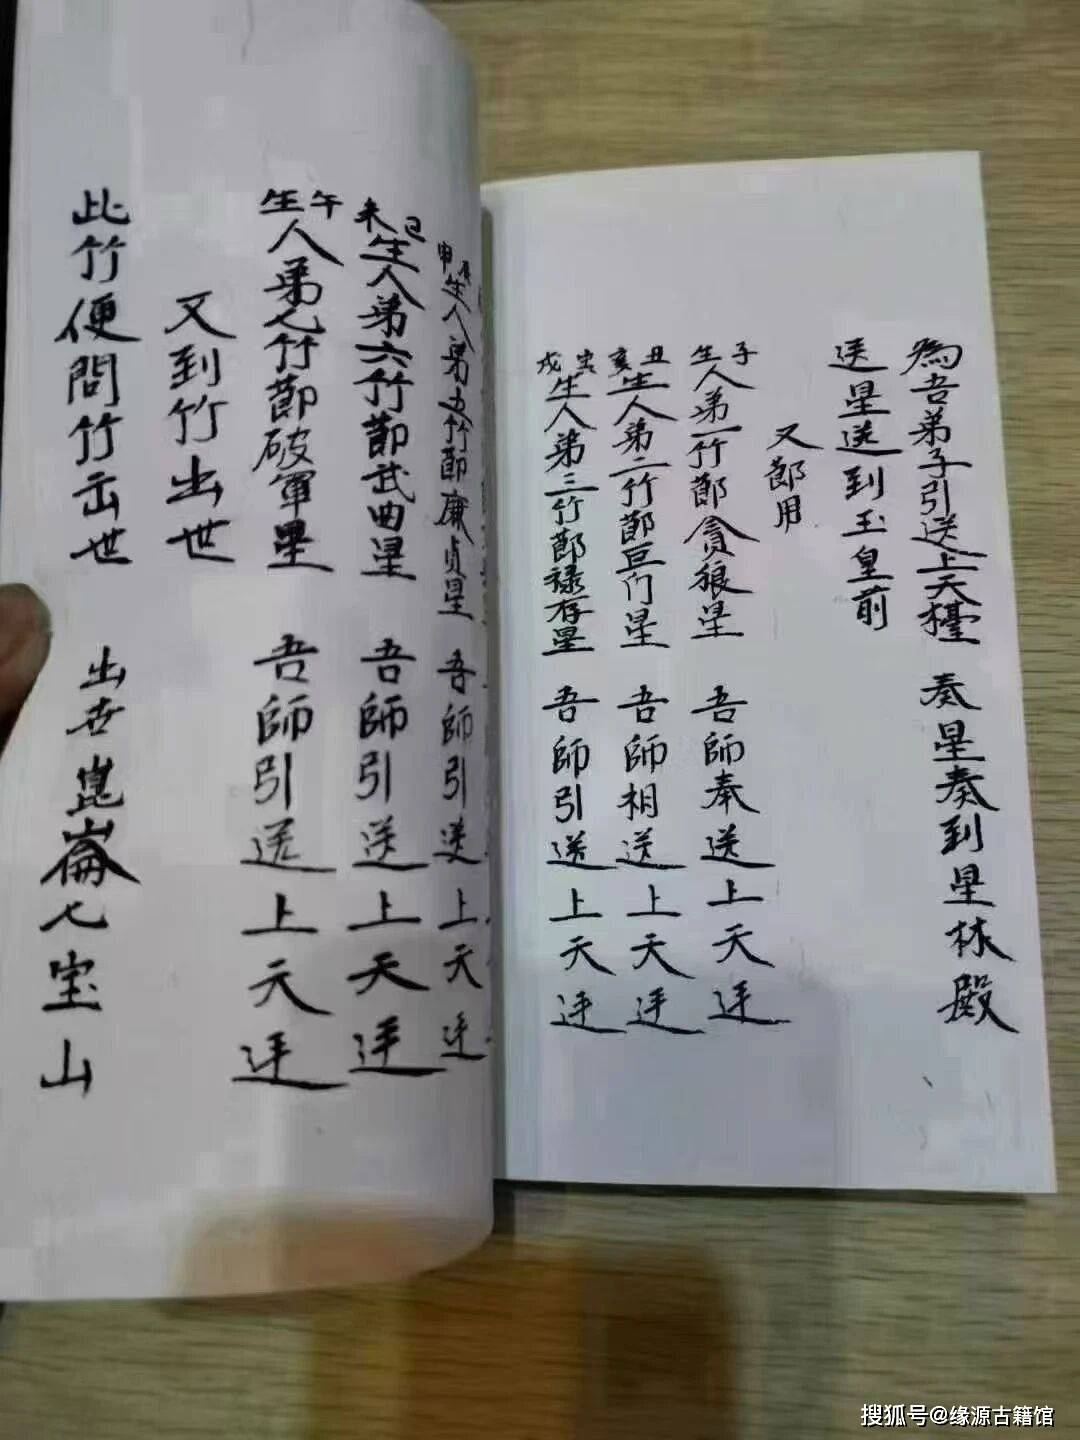 為吾弟子引送上天臺 奏星奏到星林殿
送星送到玉皇前
又節用
子生人第一竹節貪狼星 吾師奉送上天廷
丑亥生人第二竹節巨门星 吾師相送上天廷
寅戌生人第三竹節禄存星 吾師引送上天廷
申生人弟五竹節廉貞星 吾師引送上天廷
巳未生人弟六竹節武曲星 吾師引送上天廷
午生人弟七竹節破軍星 吾師引送上天廷
又到竹出世
此竹便問竹出世 出世崑崙七宝山
搜狐号@缘源古籍馆